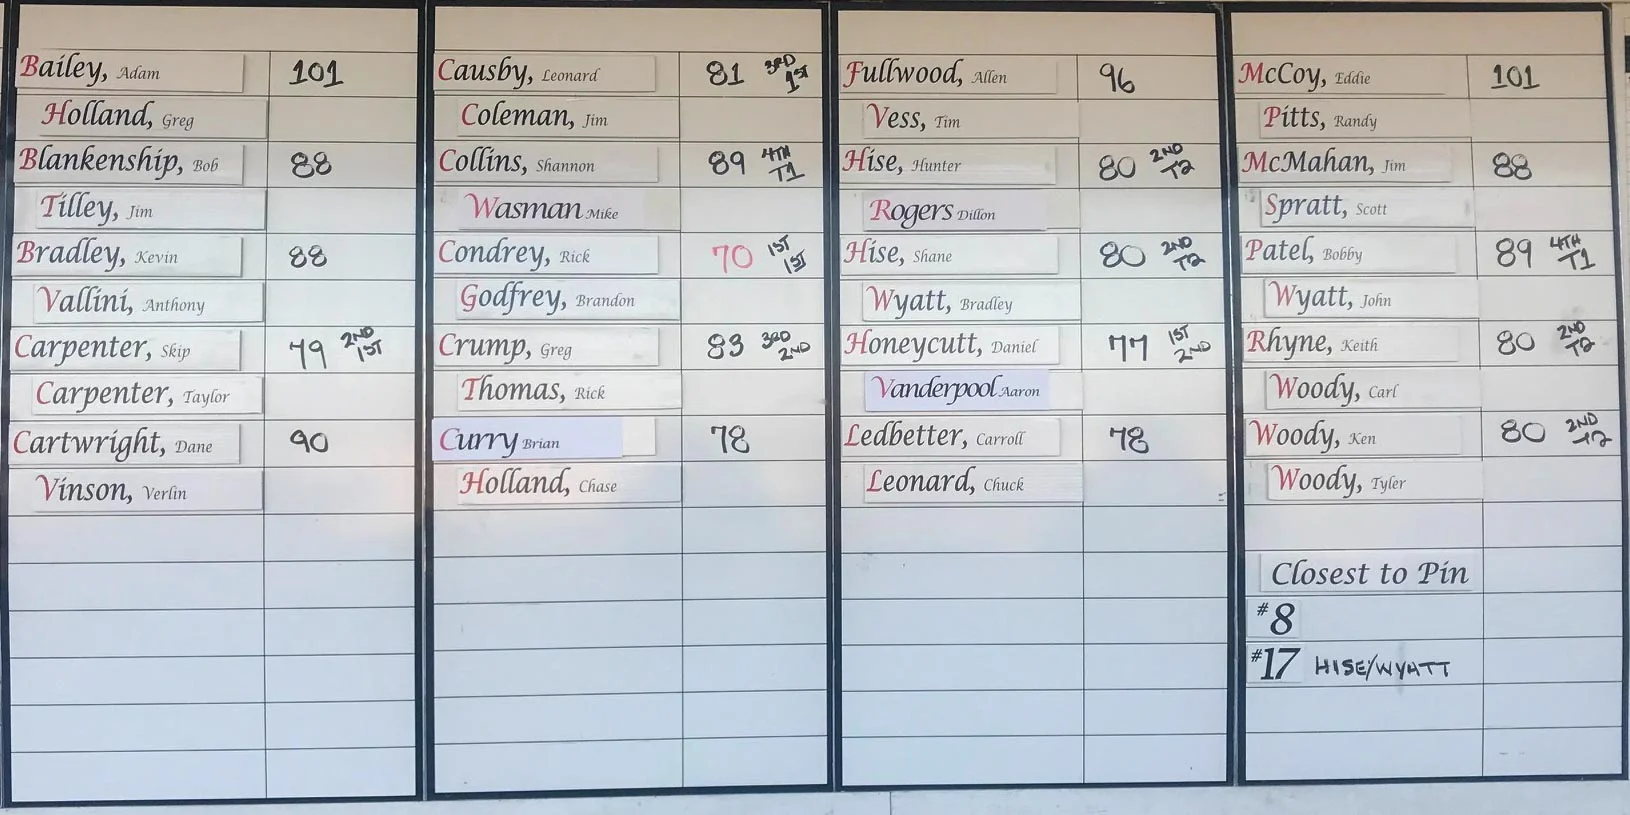 Bailey, Adam 101
Holland, Greg
Blankenship, Bob 88
Tilley, Jim
Bradley, Kevin 88
Vallini, Anthony
Carpenter, Skip 79 2ND 1ST
Carpenter, Taylor
Cartwright, Dane 90
Vinson, Verlin
Causby, Leonard 81 3RD 1ST
Coleman, Jim
Collins, Shannon 89 4TH T1
Wasman Mike
Condrey, Rick 70 1ST 1ST
Godfrey, Brandon
Crump, Greg 83 3RD 2ND
Thomas, Rick
Curry Brian 78
Holland, Chase
Fullwood, Allen 96
Vess, Tim
Hise, Hunter 80 2ND T2
Rogers Dillon
Hise, Shane 80 2ND T2
Wyatt, Bradley
Honeycutt, Daniel 77 1ST 2ND
Vanderpool Aaron
Ledbetter, Carroll 78
Leonard, Chuck
McCoy, Eddie 101
Pitts, Randy
McMahan, Jim 88
Spratt, Scott
Patel, Bobby 89 4TH T1
Wyatt, John
Rhyne, Keith 80 2ND T2
Woody, Carl
Woody, Ken 80 2ND T2
Woody, Tyler
Closest to Pin
#8
#17 HISE/WYATT